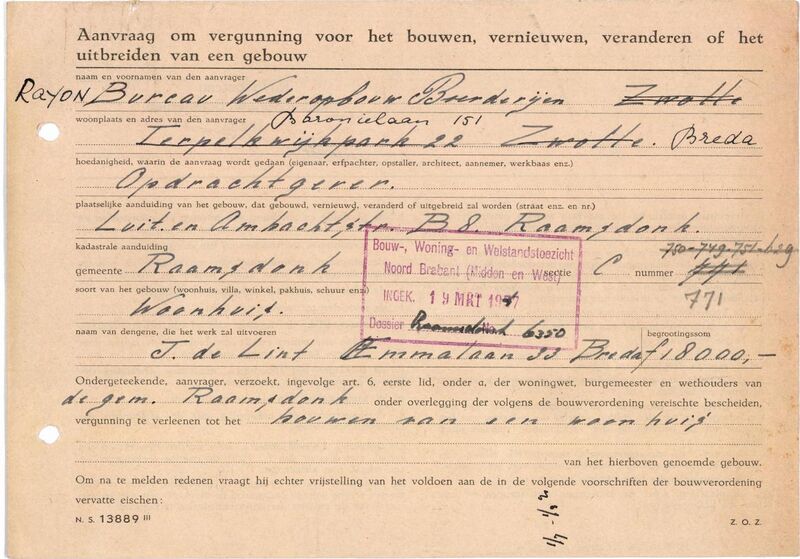 Aanvraag om vergunning voor het bouwen, vernieuwen, veranderen of het
uitbreiden van een gebouw
naam en voornamen van den aanvrager
RAYON Bureau Wederopbouw Boerderijen Zwolle
woonplaats en adres van den aanvrager Baronielaan 151
Terpelkwijkpark 22 Zwolle. Breda
hoedanigheid, waarin de aanvraag wordt gedaan (eigenaar, erfpachter, opstaller, architect, aannemer, werkbaas enz.)
Opdrachtgever.
plaatselijke aanduiding van het gebouw, dat gebouwd, vernieuwd, veranderd of uitgebreid zal worden (straat enz. en nr.)
Luit. en Ambachtstr. B 8. Raamsdonk.
kadastrale aanduiding 750-749-751-629
gemeente Raamsdonk sectie C nummer 771
771
soort van het gebouw (woonhuis, villa, winkel, pakhuis, schuur enz.)
Woonhuis.
Bouw-, Woning- en Welstandstoezicht
Noord Brabant (Midden en West)
INGEK. 19 MRT 19
Dossier Raamsdonk No. 6350
naam van dengene, die het werk zal uitvoeren begrootingssom
J. de Lint Emmalaan 33 Breda f 18000,-
Ondergeteekende, aanvrager, verzoekt, ingevolge art. 6, eerste lid, onder a, der woningwet, burgemeester en wethouders van
de gem. Raamsdonk onder overlegging der volgens de bouwverordening vereischte bescheiden,
vergunning te verleenen tot het bouwen van een woonhuis
van het hierboven genoemde gebouw.
Om na te melden redenen vraagt hij echter vrijstelling van het voldoen aan de in de volgende voorschriften der bouwverordening
vervatte eischen:
N. S. 13889 III
Z. O. Z.